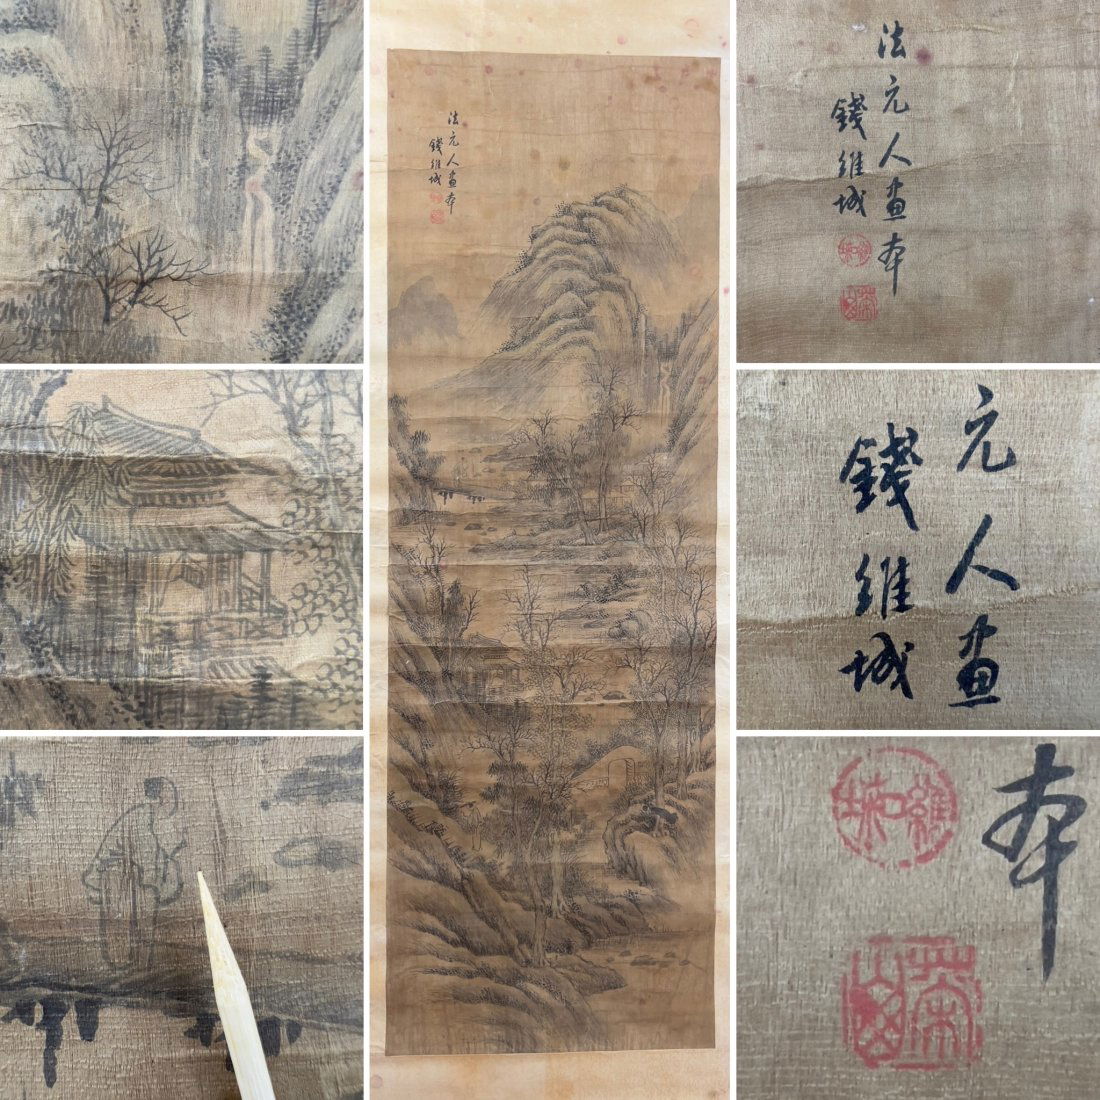 法元人畫本
錢維城
法元人畫本
錢維城
茶山
元人畫
錢維城
本
茶山